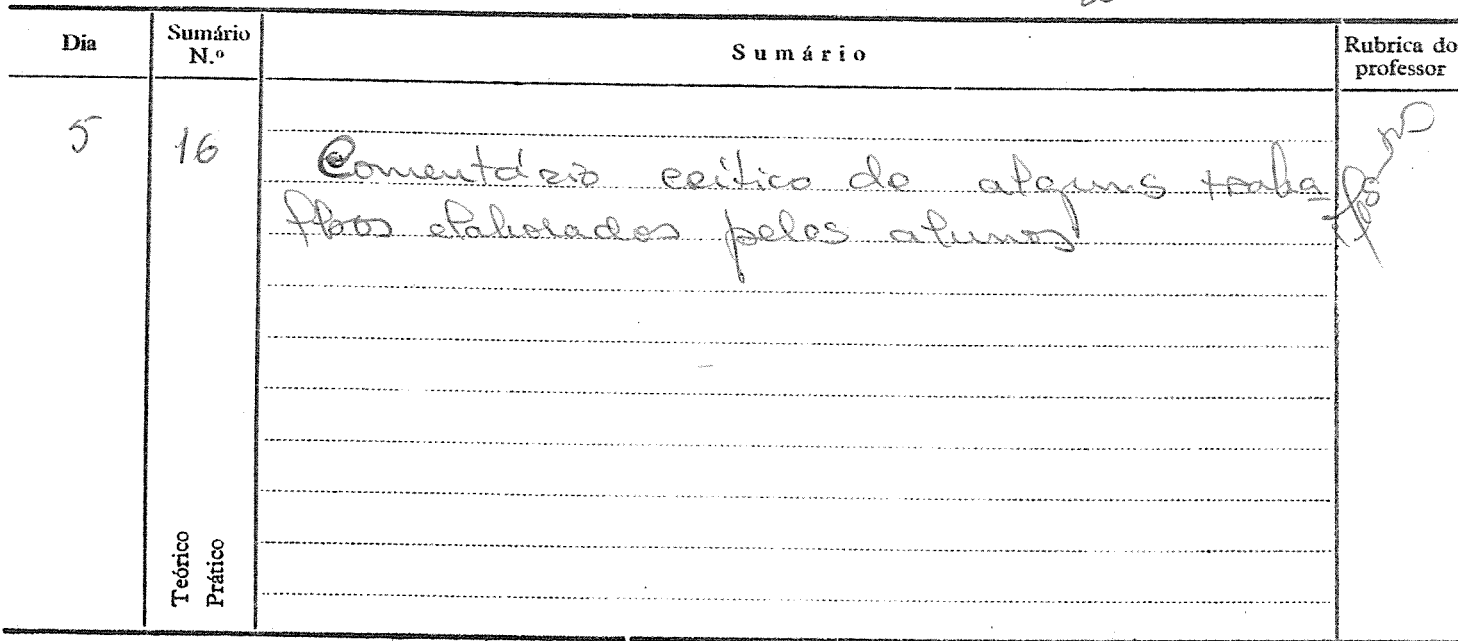 Dia
Sumário
N.º
Sumário
Rubrica do
professor
5
16
Comentário crítico de alguns traba-
lhos elaborados pelos alunos
Teórico
Prático